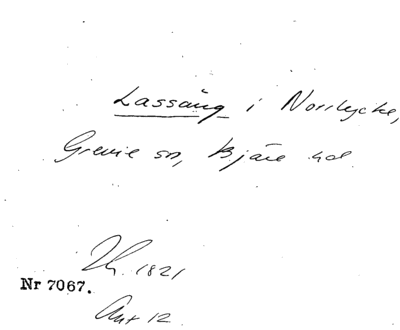 Lassäng i Norrlycke,
Grevie sn, Bjäre hd
1821
Nr 7067.
Ant 12